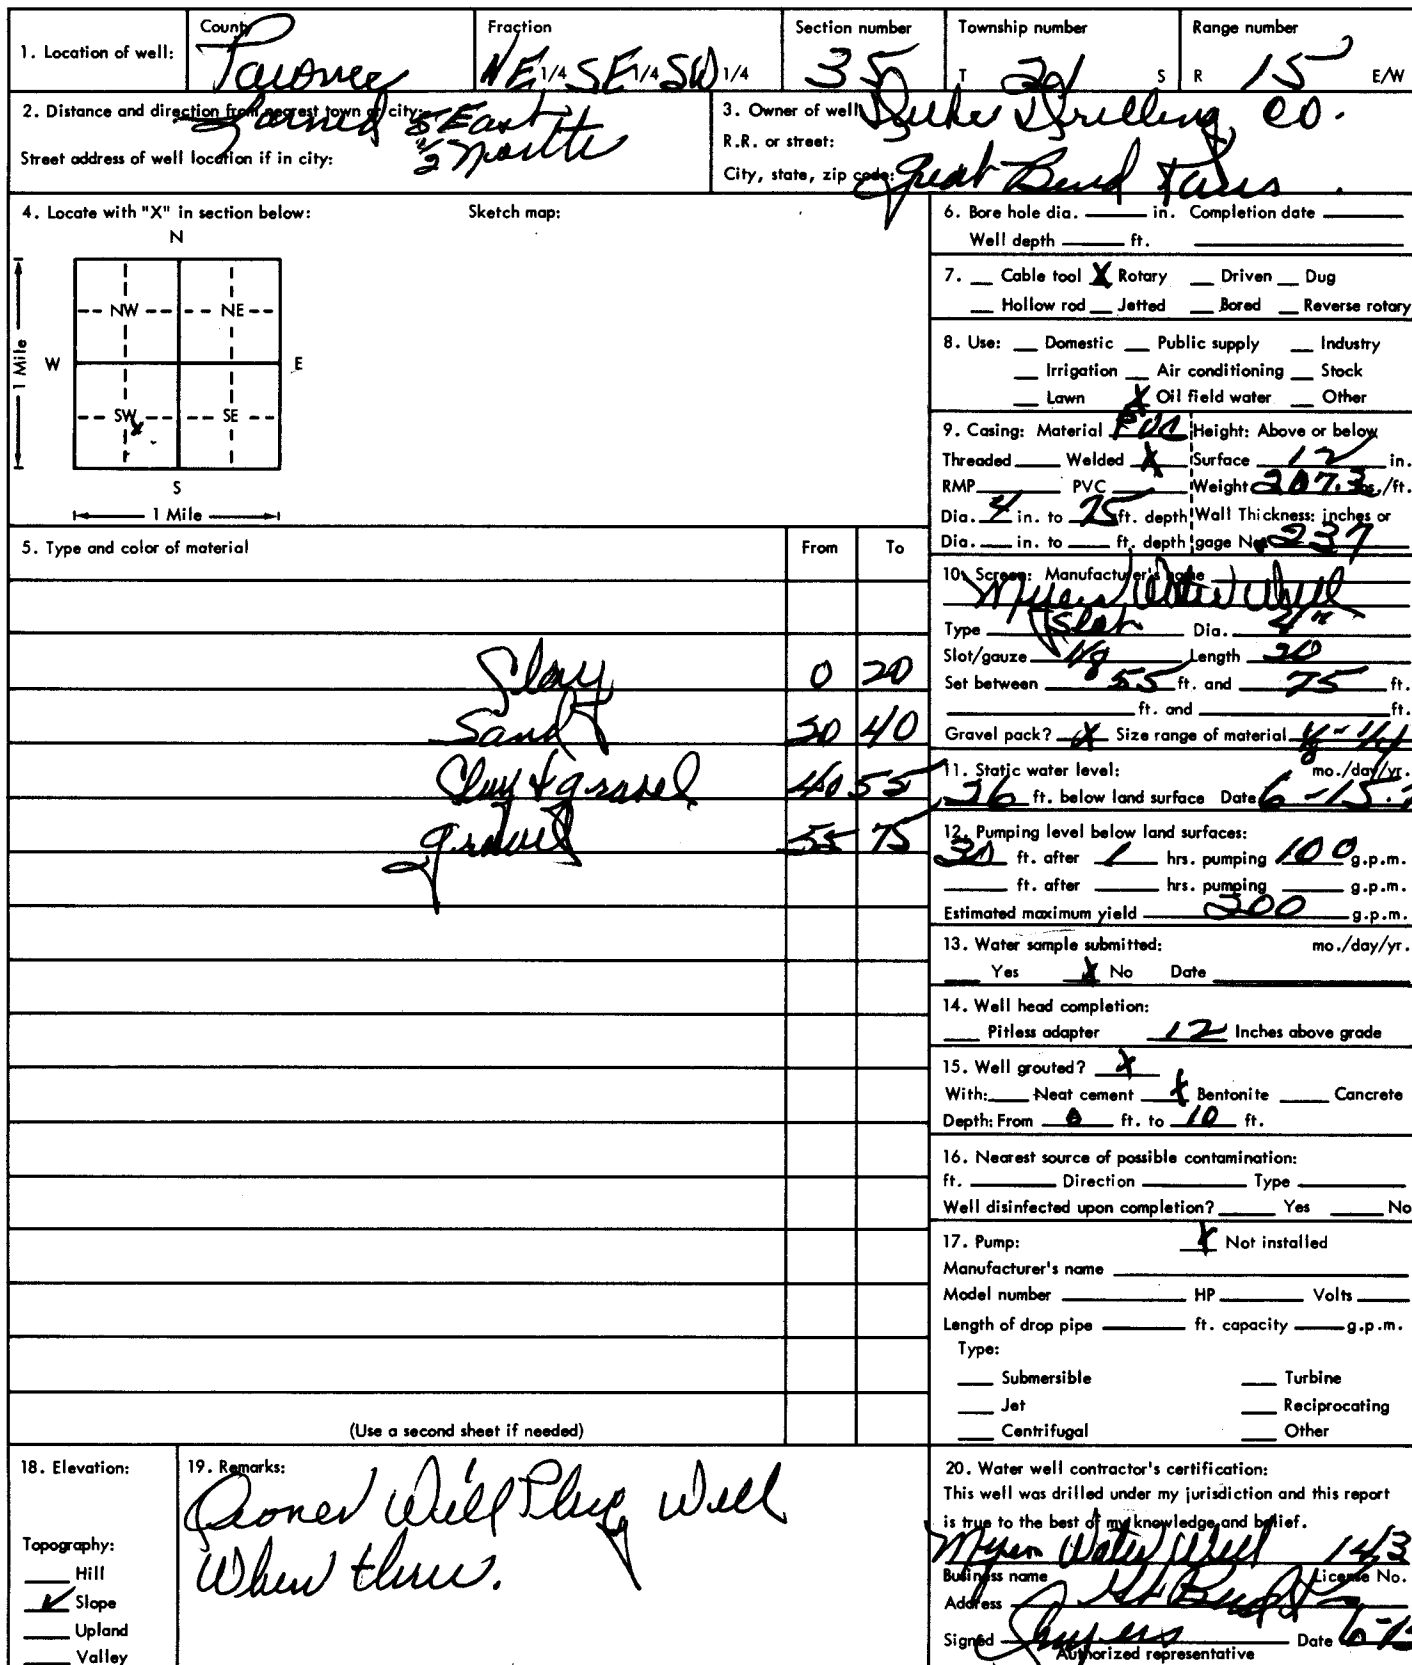 1. Location of well:
County
Pawnee
Fraction
NE 1/4 SE 1/4 SW 1/4
Section number
35
Township number
T 21 S
Range number
R 15 E/W
2. Distance and direction from nearest town or city:
Larned 5 East
1/2 North
Street address of well location if in city:
3. Owner of well Duke Drilling Co.
R.R. or street:
City, state, zip code: Great Bend Kans.
4. Locate with "X" in section below:
Sketch map:
N
NW NE
W E
1 Mile
SW SE
X
S
1 Mile
6. Bore hole dia. ____ in. Completion date ____
Well depth ____ ft. ____
7. __ Cable tool X Rotary __ Driven __ Dug
__ Hollow rod __ Jetted __ Bored __ Reverse rotary
8. Use: __ Domestic __ Public supply __ Industry
__ Irrigation __ Air conditioning __ Stock
__ Lawn X Oil field water __ Other
9. Casing: Material PVC Height: Above or below
Threaded ____ Welded X Surface 12 in.
RMP ____ PVC ____ Weight 207.3 lbs./ft.
Dia. 4 in. to 75 ft. depth Wall Thickness: inches or
Dia. ____ in. to ____ ft. depth gage No. 237
5. Type and color of material From To
Clay 0 20
Sand 20 40
Clay + gravel 40 55
gravel 55 75
(Use a second sheet if needed)
10. Screen: Manufacturer's name
Myers Water Well
Type Slot Dia. 4"
Slot/gauze 1/8 Length 20
Set between 55 ft. and 75 ft.
____ ft. and ____ ft.
Gravel pack? X Size range of material 1/8 - 1/4
11. Static water level: mo./day/yr.
26 ft. below land surface Date 6-15-7
12. Pumping level below land surfaces:
30 ft. after 1 hrs. pumping 100 g.p.m.
____ ft. after ____ hrs. pumping ____ g.p.m.
Estimated maximum yield 200 g.p.m.
13. Water sample submitted: mo./day/yr.
__ Yes X No Date ____
14. Well head completion:
__ Pitless adapter 12 Inches above grade
15. Well grouted? X
With: __ Neat cement X Bentonite __ Cancrete
Depth: From 0 ft. to 10 ft.
16. Nearest source of possible contamination:
ft. ____ Direction ____ Type ____
Well disinfected upon completion? ____ Yes ____ No
17. Pump: X Not installed
Manufacturer's name ____
Model number ____ HP ____ Volts ____
Length of drop pipe ____ ft. capacity ____ g.p.m.
Type:
__ Submersible __ Turbine
__ Jet __ Reciprocating
__ Centrifugal __ Other
18. Elevation:
Topography:
__ Hill
✓ Slope
__ Upland
__ Valley
19. Remarks:
Owner Will Plug Well
When thru.
20. Water well contractor's certification:
This well was drilled under my jurisdiction and this report
is true to the best of my knowledge and belief.
Myers Water Well 143
Business name License No.
Address Gt Bend
Signed Myers Date 6-15
Authorized representative